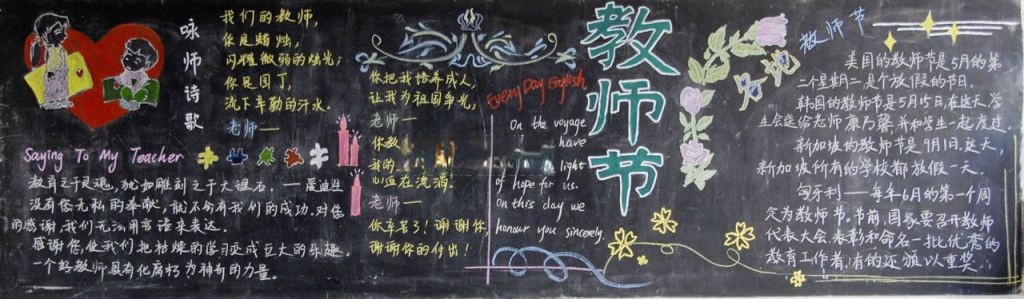 咏师诗歌
我们的教师,
你是蜡烛,
闪耀微弱的烛光;
你是园丁,
流下辛勤的汗水。
老师—
你把我培养成人,
让我为祖国争光,
老师—
你教
我的
心血在流淌!
老师—
你辛苦了!谢谢你,
谢谢你的付出!
Saying To My Teacher
教育之于灵魂,犹如雕刻之于大理石。——爱迪生
没有您无私的奉献,就不会有我们的成功.对您
的感谢,我们无法用言语来表达。
感谢您使我们把枯燥的学习变成巨大的乐趣.
一个好教师具有化腐朽为神奇的力量。
Every Day English
On the voyage
have
light
of hope for us.
On this day we
honour you sincerely.
教师节
各地
教师节
美国的教师节是5月的第
二个星期二是个放假的节日.
韩国的教师节是5月15日在这天,学
生会送给老师康乃馨,并和学生一起度过.
新加坡的教师节是9月1日.这天,
新加坡所有的学校都放假一天。
匈牙利——每年6月的第一个周
定为教师节。节前,国家要召开教师
代表大会.表彰和命名一批优秀的
教育工作者,有的还颁以重奖。